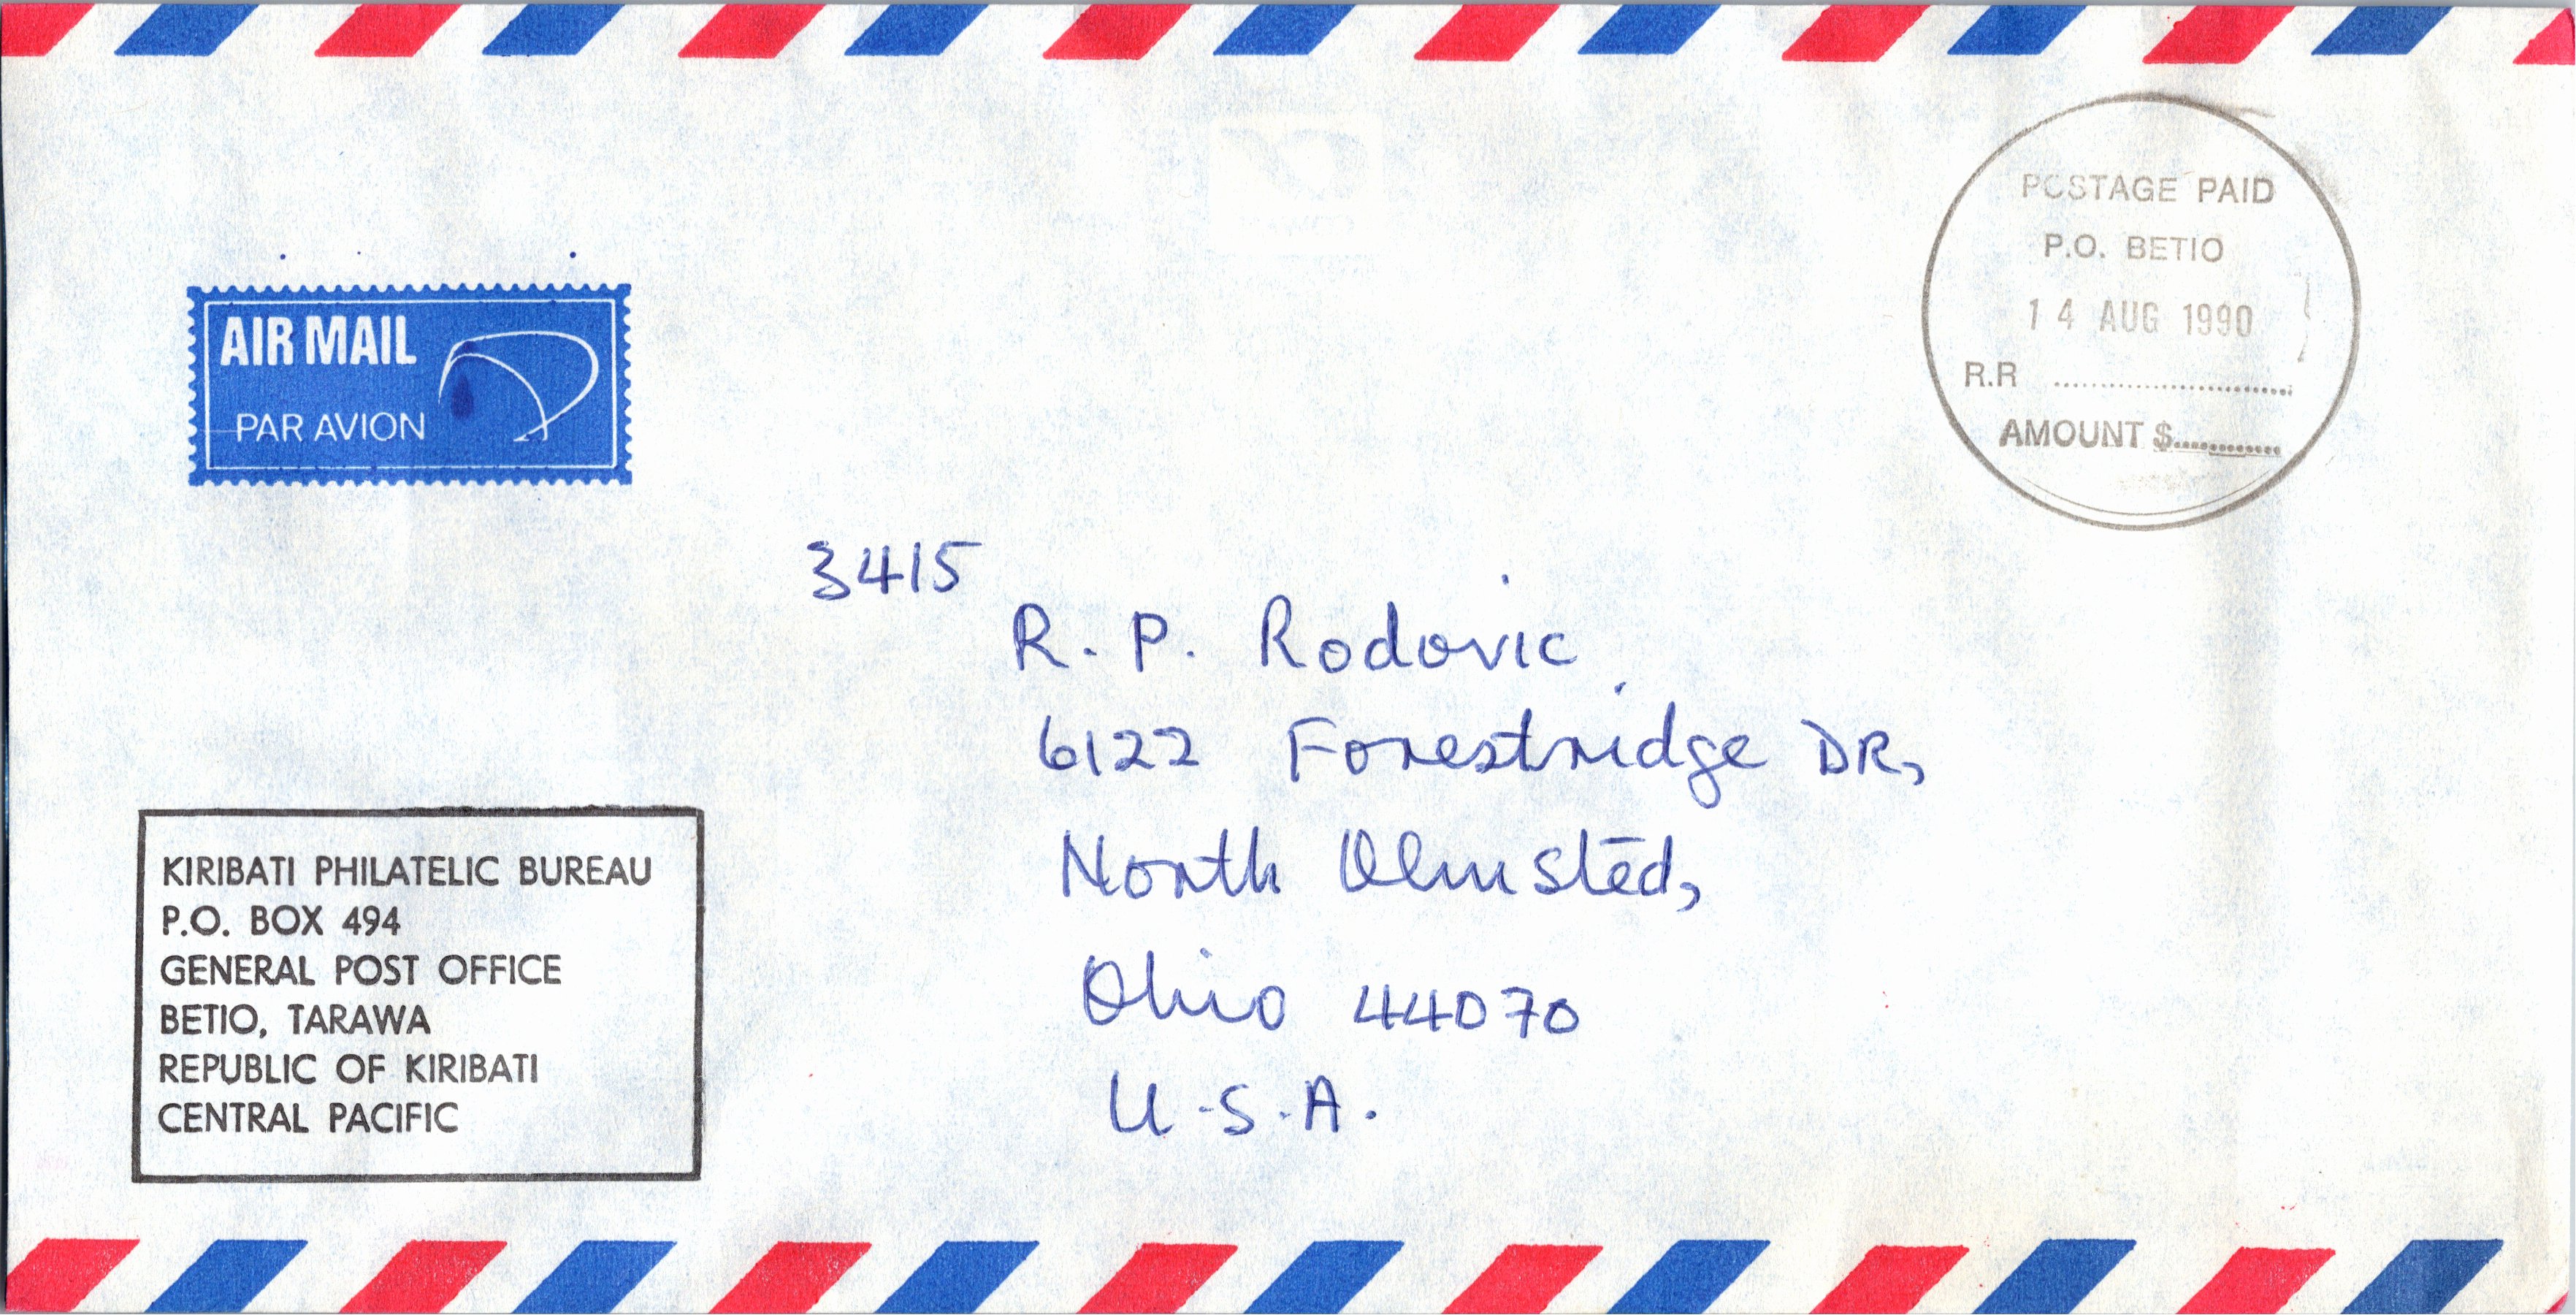 POSTAGE PAID
P.O. BETIO
14 AUG 1990
R.R ........................
AMOUNT $............
AIR MAIL
PAR AVION
3415
R. P. Rodovic
6122 Forestridge DR,
North Olmsted,
Ohio 44070
U.S.A.
KIRIBATI PHILATELIC BUREAU
P.O. BOX 494
GENERAL POST OFFICE
BETIO, TARAWA
REPUBLIC OF KIRIBATI
CENTRAL PACIFIC